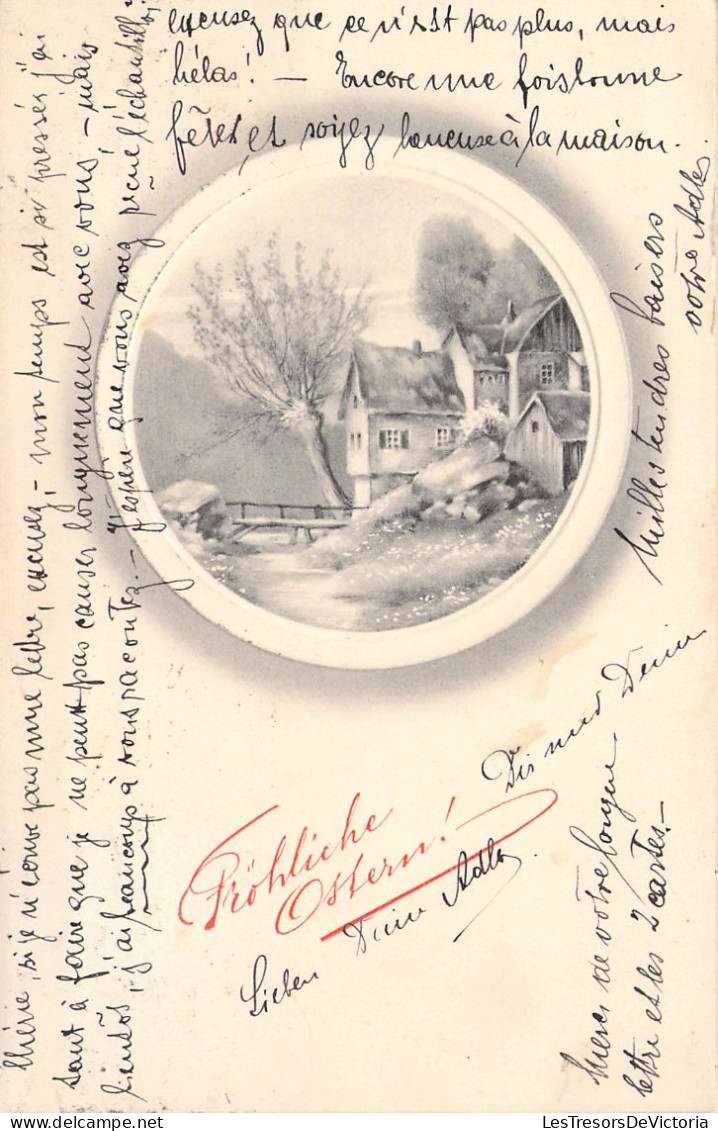 Chérie, si je n'écris pas une lettre, excusez, - mon temps est si pressé; j'ai
tant à faire que je ne peux pas causer longuement avec vous, - mais
bientôt, j'ai beaucoup à vous raconter. - J'espère que vous avez reçu l'échantillon;
excusez que ce n'est pas plus, mais
hélas! - Encore une fois bonne
fêtes, et soyez heureuse à la maison.
Milles tendres baisers
votre Adler.
Fröhliche
Ostern!
Dir und Deinen
Lieben Dein Adler
Merci de votre longue
lettre et les 2 cartes. -
LesTresorsDeVictoria